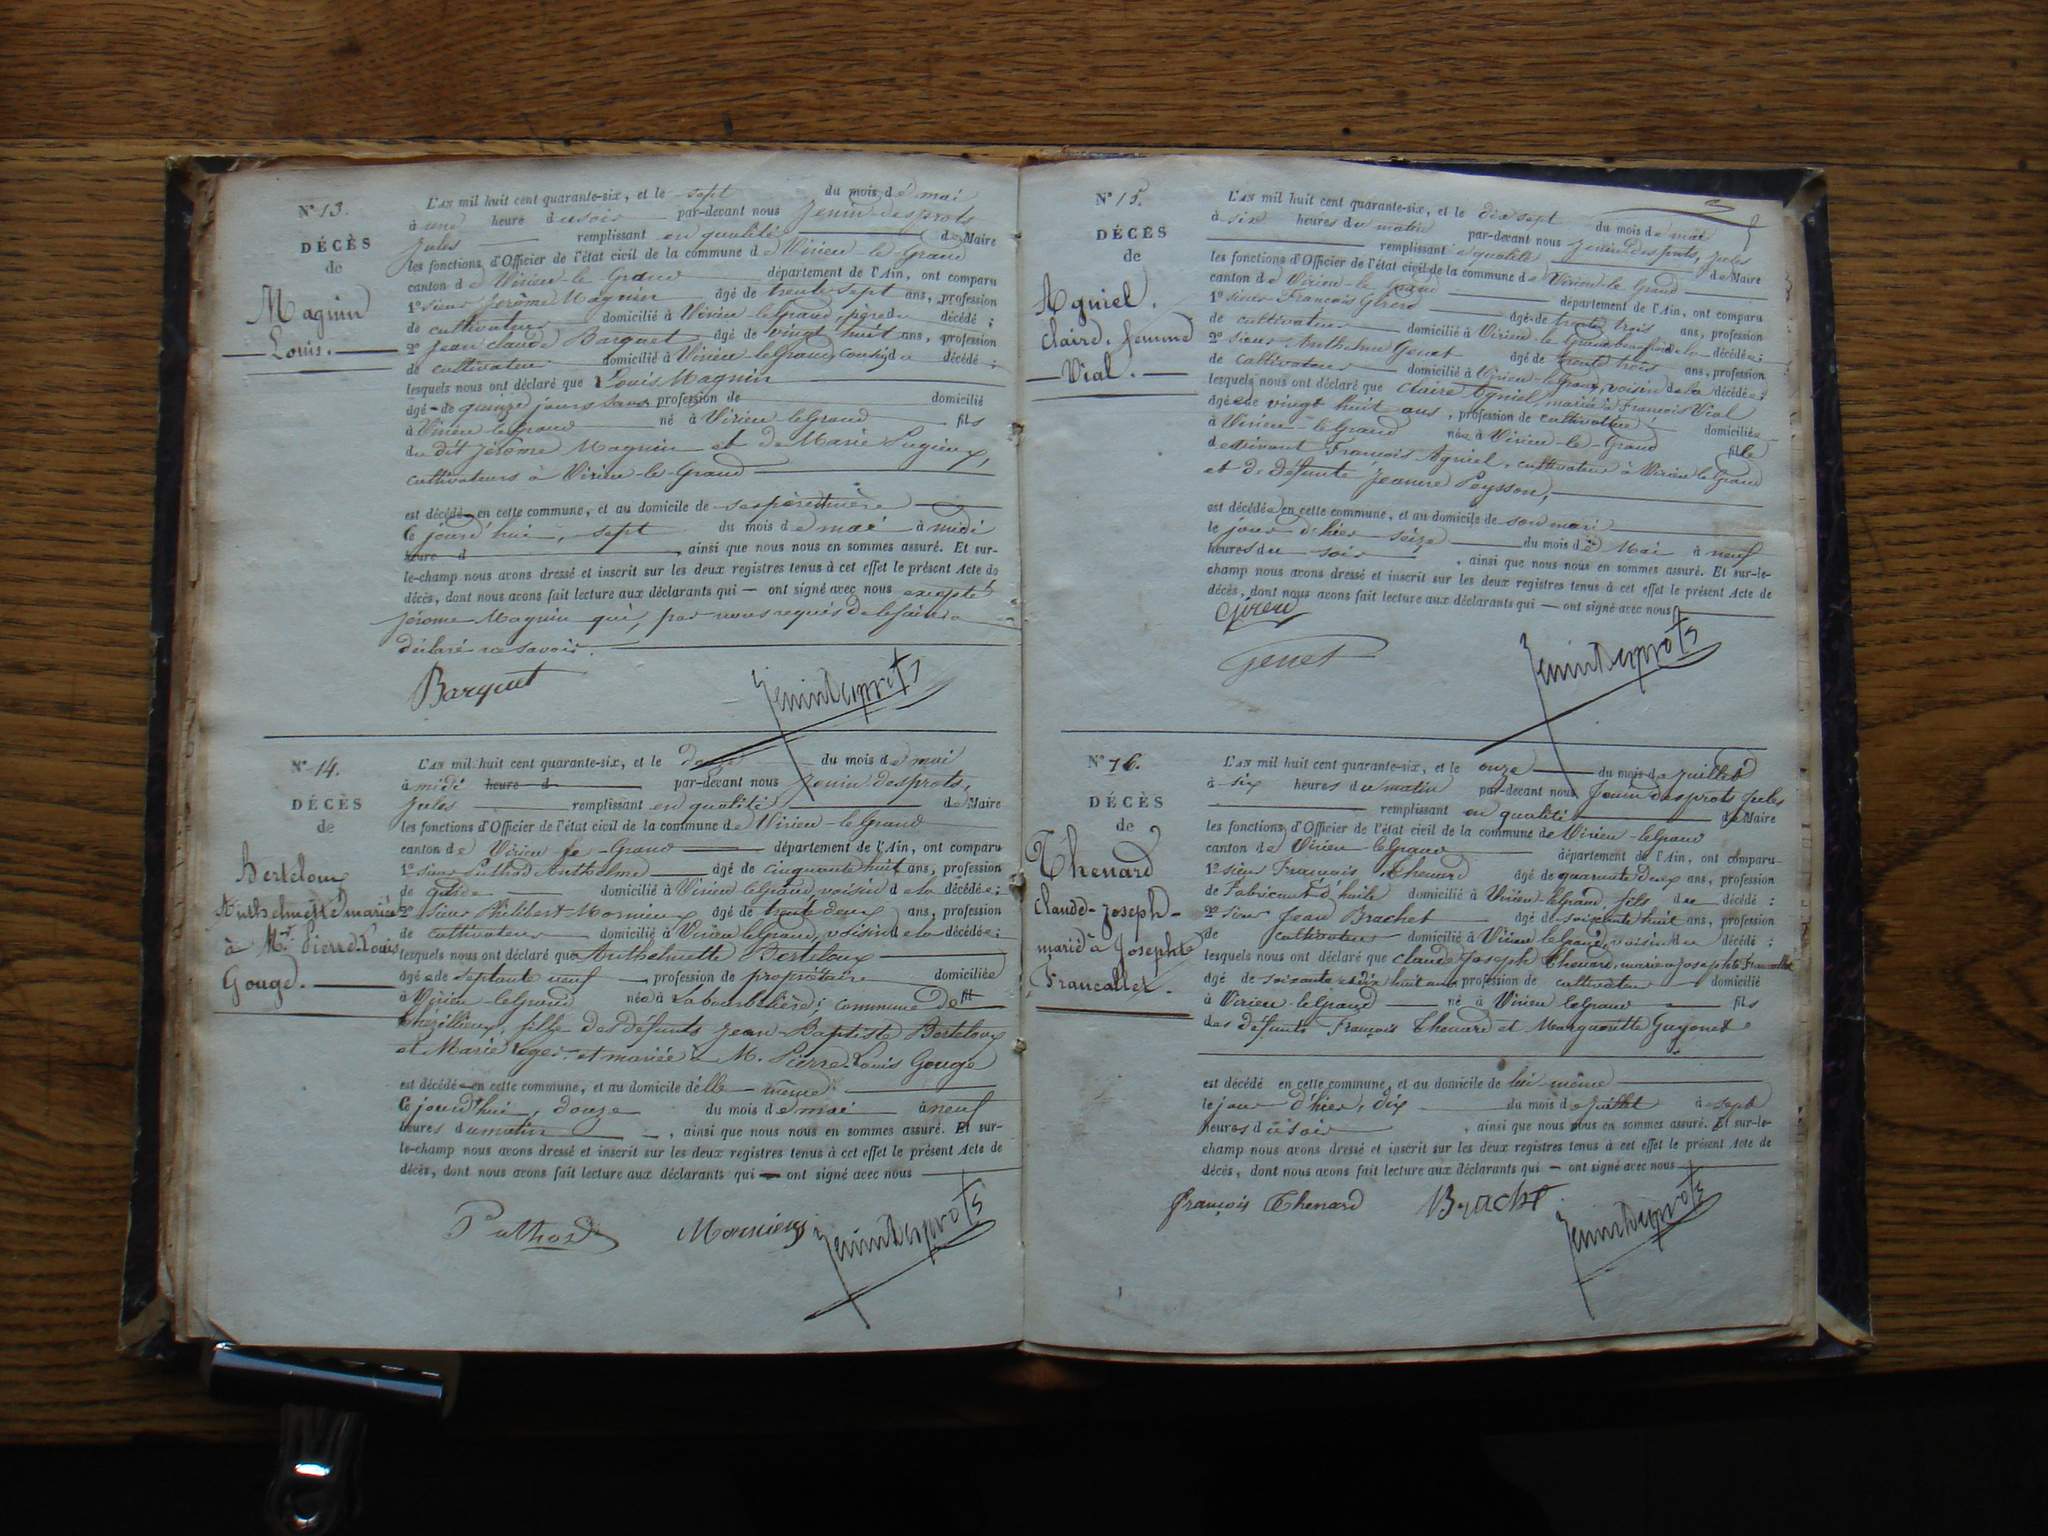 N° 13.
DÉCÈS
de
Magnin
Louis.
L'AN mil huit cent quarante-six, et le sept du mois de mai
à une heure du soir par-devant nous Jenin desprots
Jules remplissant en qualité de Maire
les fonctions d'Officier de l'état civil de la commune de Virieu-le-Grand
canton de Virieu-le-Grand département de l'Ain, ont comparu
1° sieur Jérôme Magnin âgé de trente sept ans, profession
de cultivateur domicilié à Virieu-leGrand, père du décédé;
2° Jean Claude Barquet âgé de vingt huit ans, profession
de cultivateur domicilié à Virieu leGrand, du décédé;
lesquels nous ont déclaré que Louis Magnin
âgé de quinze jours sans profession de domicilié
à Virieu leGrand né à Virieu leGrand fils
du dit Jérôme Magnin et de Marie Lugieux,
cultivateurs à Virieu-le-Grand
est décédé en cette commune, et au domicile de ses père et mère
Ce jourd'hui, sept du mois de mai à midi
heure d , ainsi que nous nous en sommes assuré. Et sur-
le-champ nous avons dressé et inscrit sur les deux registres tenus à cet effet le présent Acte de
décès, dont nous avons fait lecture aux déclarants qui — ont signé avec nous excepté
Jérome Magnin qui, par nous requis de le faire a
déclaré ne savoir.
Barquet JeninDesprots
N° 14.
DÉCÈS
de
Berteloux
Anthelmette mariée
à Mr. Pierre-Louis
Gouge.
L'AN mil huit cent quarante-six, et le douze du mois de mai
à midi heure d par-devant nous Jenin desprots,
Jules remplissant en qualité de Maire
les fonctions d'Officier de l'état civil de la commune de Virieu-leGrand
canton de Virieu le-Grand département de l'Ain, ont comparu
1° sieur Puthod Anthelme âgé de cinquante huit ans, profession
de domicilié à Virieu leGrand, voisin de la décédée;
2° sieur Philibert Mornieux âgé de trente deux ans, profession
de cultivateur domicilié à Virieu leGrand, voisin de la décédée;
lesquels nous ont déclaré que Anthelmette Berteloux
âgée de septante neuf profession de propriétaire domiciliée
à Virieu-leGrand née à Labourbelière, commune de fil
Chézillieux, fille des défunts Jean-Baptiste Berteloux
et Marie Roger et mariée à M. Pierre Louis Gouge
est décédé en cette commune, et au domicile d'elle-même
Ce jourd'hui, douze du mois de mai à neuf
heures du matin , ainsi que nous nous en sommes assuré. Et sur-
le-champ nous avons dressé et inscrit sur les deux registres tenus à cet effet le présent Acte de
décès, dont nous avons fait lecture aux déclarants qui — ont signé avec nous
Puthod Mornieux JeninDesprots
N° 15.
DÉCÈS
de
Agniel.
Claire, femme
Vial.
L'AN mil huit cent quarante-six, et le dix sept du mois de mai
à six heures du matin par-devant nous Jenin Desprots, Jules
remplissant qualité de Maire
les fonctions d'Officier de l'état civil de la commune de Virieu-le Grand
canton de Virieu-le-Grand département de l'Ain, ont comparu
1° sieur François Girerd âgé de trente trois ans, profession
de cultivateur domicilié à Virieu-le Grand de la décédée;
2° sieur Anthelme Genet âgé de trente trois ans, profession
de cultivateur domicilié à Virieu-leGrand, voisin de la décédée;
lesquels nous ont déclaré que Claire Agniel, mariée à François Vial
âgée de vingt huit ans, profession de cultivateur domiciliée
à Virieu-leGrand née à Virieu-le-Grand fille
de vivant François Agniel, cultivateur à Virieu le Grand
et de défunte Jeanne Peysson,
est décédée en cette commune, et au domicile de son mari
le jour d'hier seize du mois de Mai à neuf
heures du soir , ainsi que nous nous en sommes assuré. Et sur-le-
champ nous avons dressé et inscrit sur les deux registres tenus à cet effet le présent Acte de
décès, dont nous avons fait lecture aux déclarants qui — ont signé avec nous
Girerd
Genet JeninDesprots
N° 16.
DÉCÈS
de
Thenard
Claude-Joseph-
marié à Josephte
Francallet.
L'AN mil huit cent quarante-six, et le onze du mois de juillet
à six heures du matin par-devant nous Jenin desprots Jules
remplissant en qualité de Maire
les fonctions d'Officier de l'état civil de la commune de Virieu-leGrand
canton de Virieu-leGrand département de l'Ain, ont comparu
1° sieur François Thenard âgé de quarante deux ans, profession
de Fabricant d'huile domicilié à Virieu-leGrand, fils du décédé;
2° sieur Jean Brachet âgé de soixante huit ans, profession
de cultivateur domicilié à Virieu leGrand, voisin du décédé;
lesquels nous ont déclaré que Claude Joseph Thenard, marié à Josephte Francallet
âgé de soixante et dix huit ans profession de cultivateur domicilié
à Virieu-leGrand né à Virieu leGrand fils
des défunts François Thenard et Marguerite Guyonet
est décédé en cette commune, et au domicile de lui-même
le jour d'hier, dix du mois de juillet à sept
heures du soir , ainsi que nous nous en sommes assuré. Et sur-le-
champ nous avons dressé et inscrit sur les deux registres tenus à cet effet le présent Acte de
décès, dont nous avons fait lecture aux déclarants qui — ont signé avec nous
François Thenard Brachet JeninDesprots